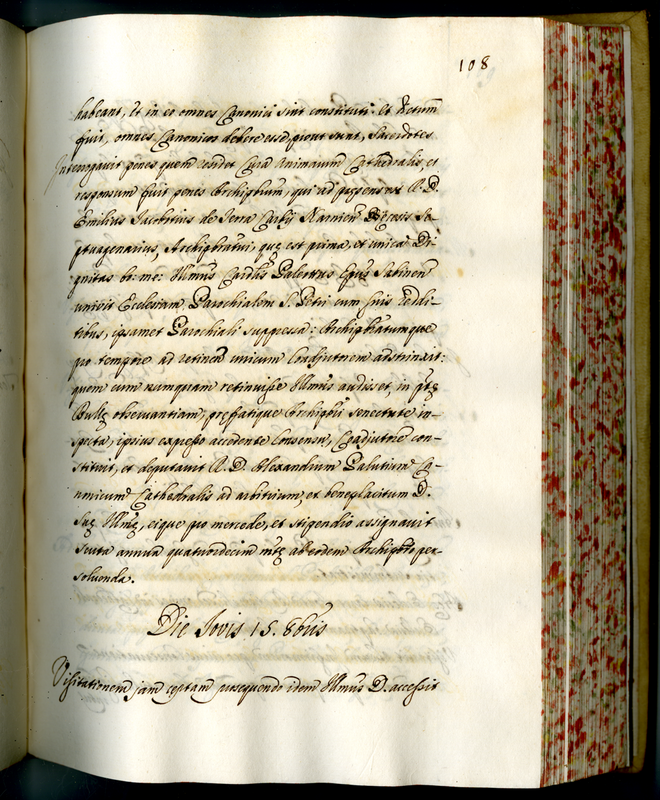 108
habeant, et in eo omnes Canonici sint constituti: Et dictum
fuit, omnes Canonicos debere esse, prout sunt, Sacerdotes
Interrogavit penes quem resideat Cura Animarum Cathedralis, et
responsum fuit penes Archipbrum, qui ad praesens est R. D.
Emilius Jacobitius de Serra
ptuagenarius, Archipbratui, que est prima, et unica Di-
gnitas bo: me: Illmus Cardlis Paleottus Epus Sabinen
univit Ecclesiam Parochialem S. Petri cum suis reddi-
tibus, ipsamet Parochiali suppressa: Archipbrumque
pro tempore ad retinendum unicum Coadjutorem adstrinxit:
quem cum numquam retinuisse Illmus audisset, in
Bulle observantiam, prefatique Archipbri senectute in-
specta, ipsius expresso accedente Consensu, Coadjutorem con-
stituit, et deputavit R. D. Alexandrum Salutium Ca-
nonicum Cathedralis ad arbitrium, et beneplacitum D.
Sue Illme, eique pro mercede, et stipendio assignavit
scuta annua quatuordecim mte ab eodem Archipbro per-
solvenda.
Die Jovis 15. 8bris
Visitationem jam ceptam prosequendo idem Illmus D. accessit